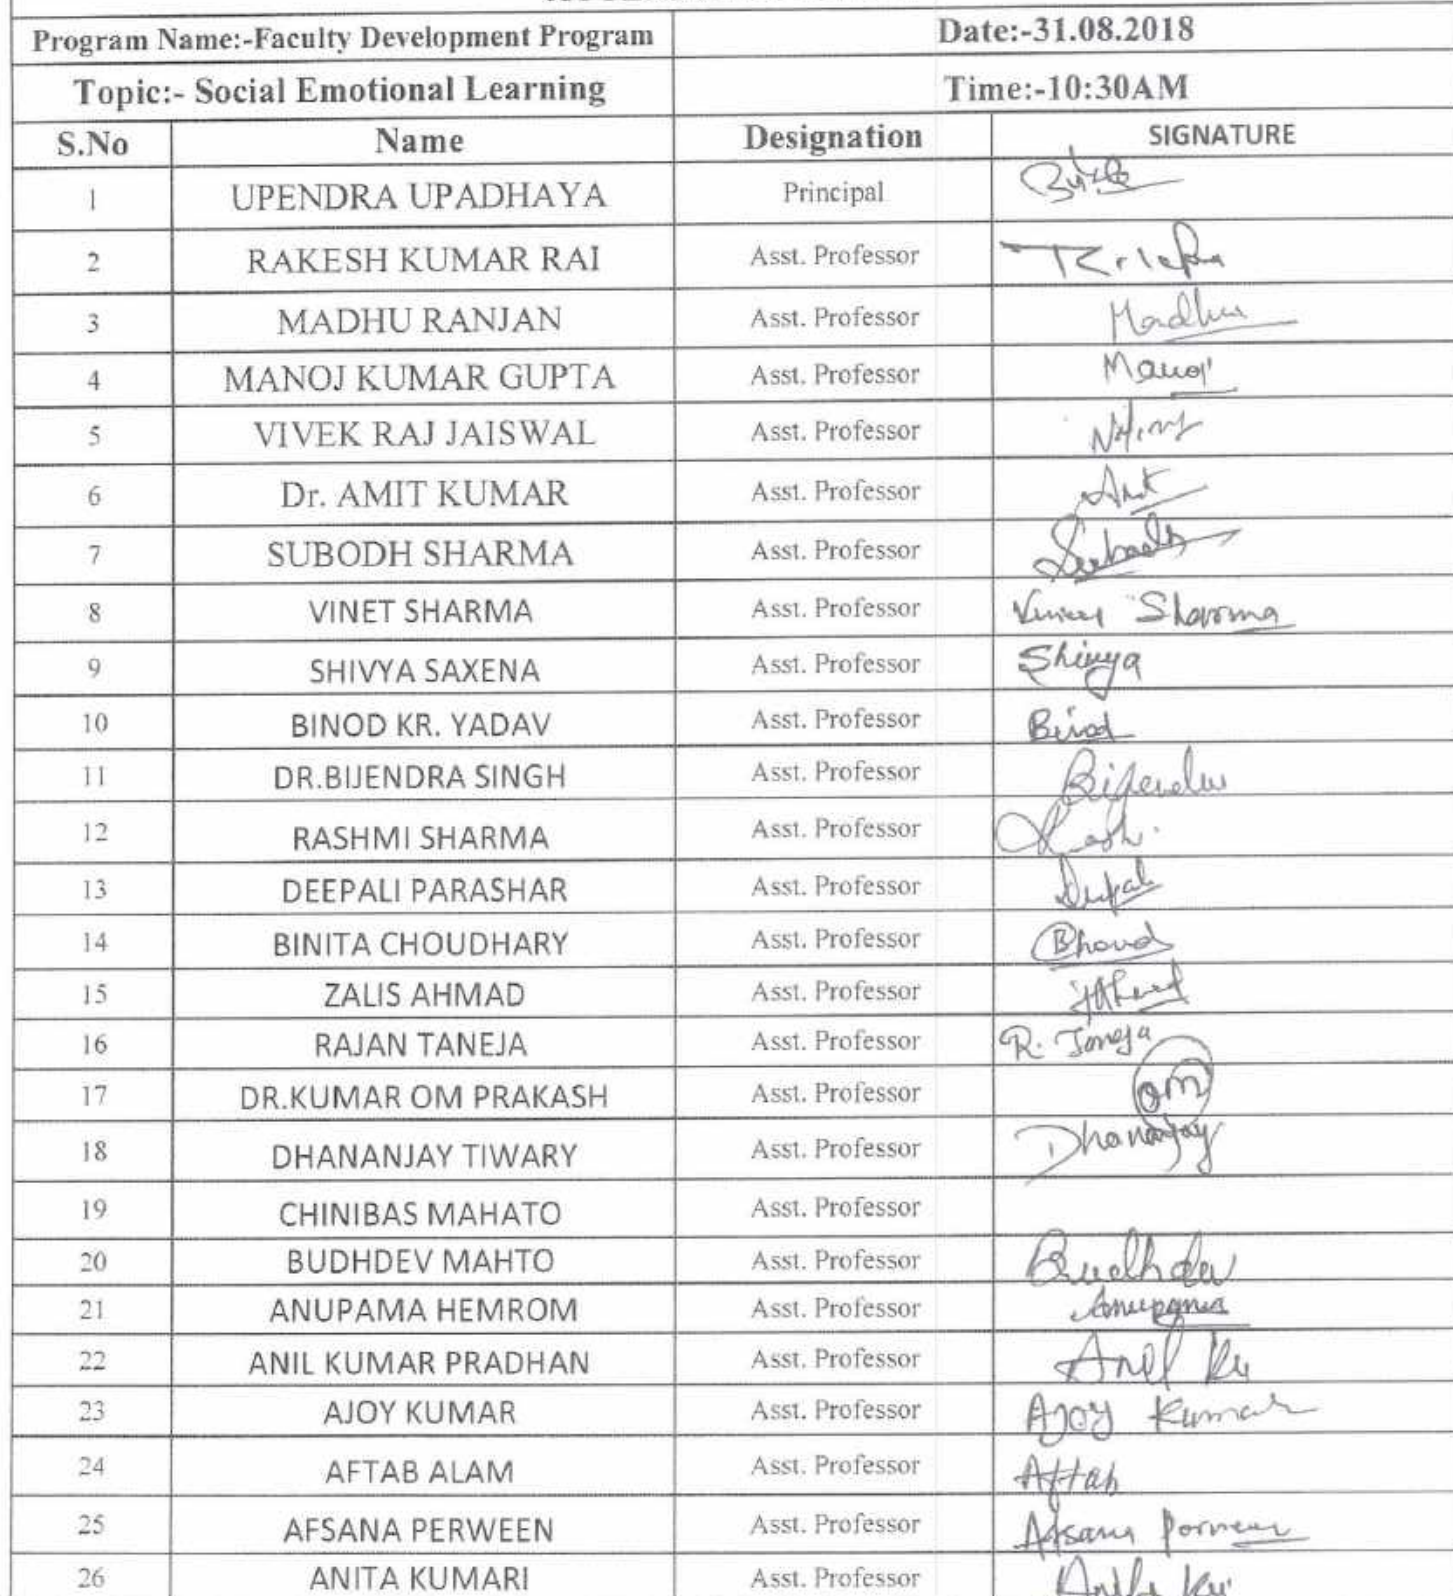 Program Name:-Faculty Development Program Date:-31.08.2018
Topic:- Social Emotional Learning Time:-10:30AM
S.No Name Designation SIGNATURE
1 UPENDRA UPADHAYA Principal
2 RAKESH KUMAR RAI Asst. Professor
3 MADHU RANJAN Asst. Professor Madhu
4 MANOJ KUMAR GUPTA Asst. Professor Manoj
5 VIVEK RAJ JAISWAL Asst. Professor
6 Dr. AMIT KUMAR Asst. Professor
7 SUBODH SHARMA Asst. Professor Subodh
8 VINET SHARMA Asst. Professor Sharma
9 SHIVYA SAXENA Asst. Professor Shivya
10 BINOD KR. YADAV Asst. Professor Binod
11 DR.BIJENDRA SINGH Asst. Professor
12 RASHMI SHARMA Asst. Professor
13 DEEPALI PARASHAR Asst. Professor
14 BINITA CHOUDHARY Asst. Professor
15 ZALIS AHMAD Asst. Professor
16 RAJAN TANEJA Asst. Professor R. Taneja
17 DR.KUMAR OM PRAKASH Asst. Professor om
18 DHANANJAY TIWARY Asst. Professor Dhananjay
19 CHINIBAS MAHATO Asst. Professor
20 BUDHDEV MAHTO Asst. Professor Budhdev
21 ANUPAMA HEMROM Asst. Professor Anupama
22 ANIL KUMAR PRADHAN Asst. Professor Anil Ku
23 AJOY KUMAR Asst. Professor Ajoy Kumar
24 AFTAB ALAM Asst. Professor Aftab
25 AFSANA PERWEEN Asst. Professor Afsana Perween
26 ANITA KUMARI Asst. Professor